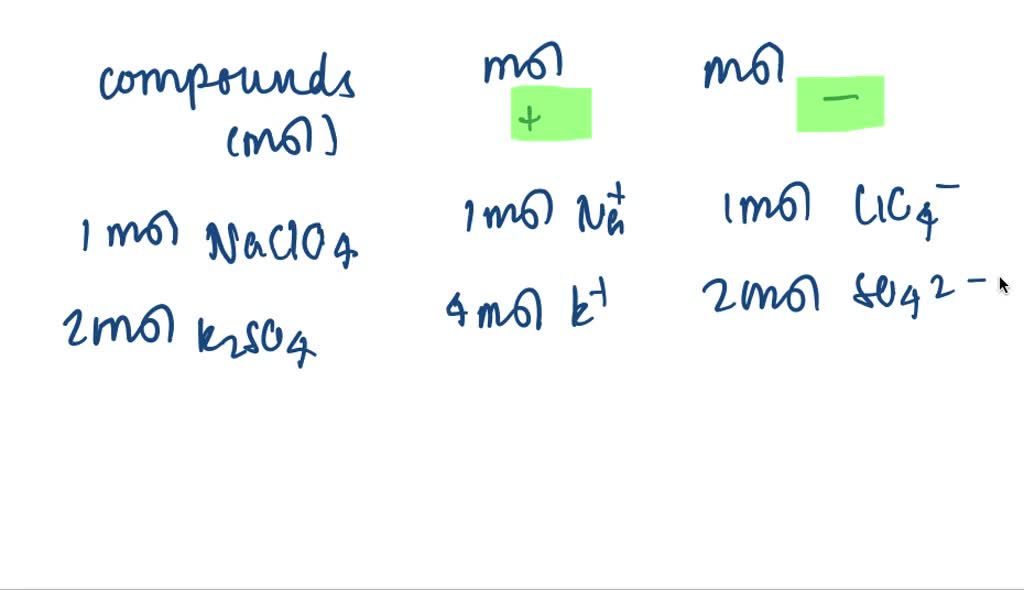 compounds mol mol
(mol) + −
1 mol NaClO4 1 mol Na+ 1 mol ClC4−
2 mol K2SO4 4 mol K+ 2 mol SO4 2−